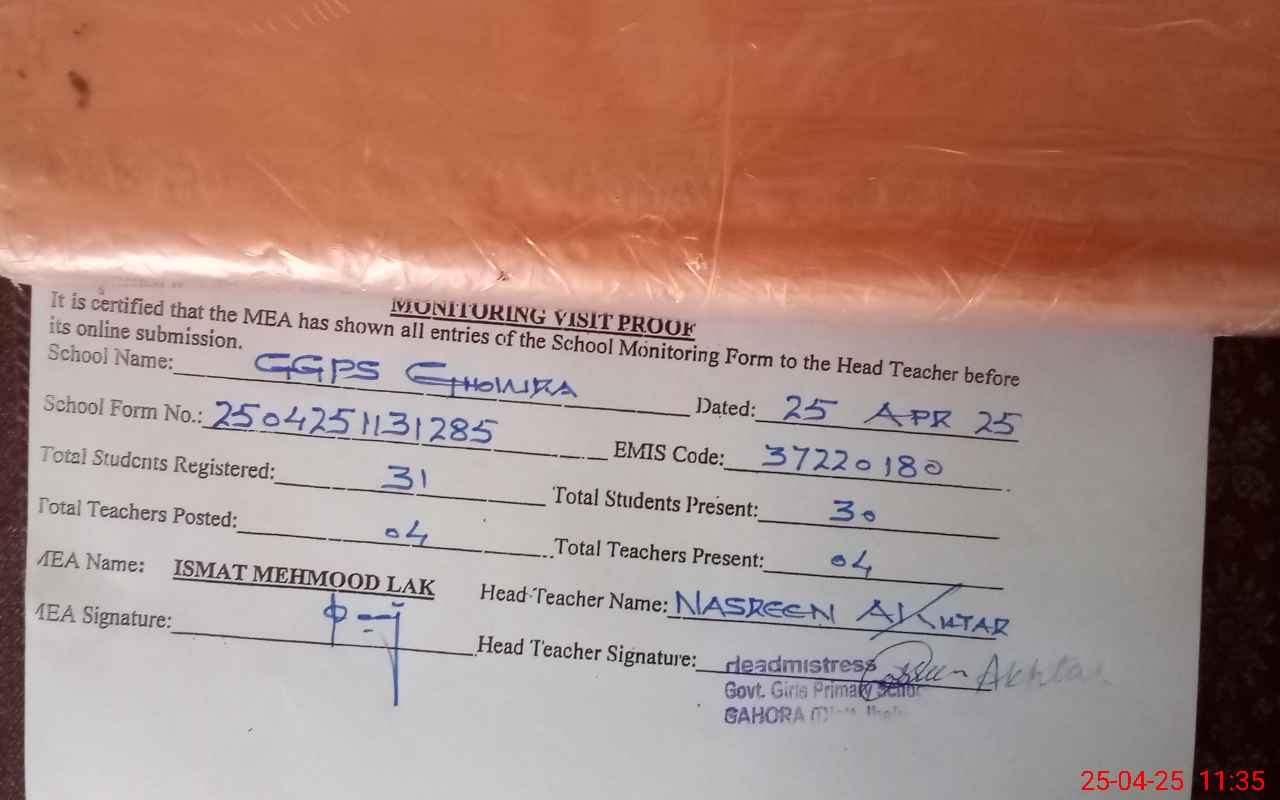 MONITORING VISIT PROOF
It is certified that the MEA has shown all entries of the School Monitoring Form to the Head Teacher before
its online submission.
School Name: GGPS GHOWRA Dated: 25 APR 25
School Form No.: 2504251131285 EMIS Code: 37220180
Total Students Registered: 31 Total Students Present: 30
Total Teachers Posted: 04 Total Teachers Present: 04
MEA Name: ISMAT MEHMOOD LAK Head Teacher Name: NASREEN AKHTAR
MEA Signature: Head Teacher Signature: Akhtar
Headmistress
Govt. Girls Primary School
GAHORA
25-04-25 11:35